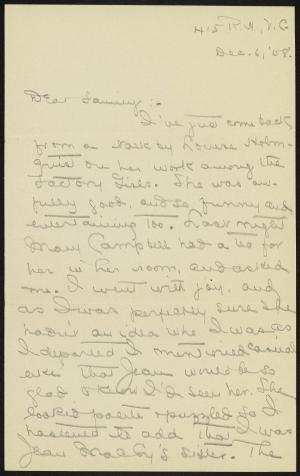 415 R.H., V.C.
Dec. 6, '08.
Dear Sammy:-
I've just come back
from a talk by Louise Holm-
quist on her work among the
Factory Girls. She was aw-
fully good, and so funny and
entertaining too. Last night
Mary Campbell had a tea for
her in her room, and asked
me. I went with joy, and
as I was perfectly sure she
hadn't an idea who I was as
I departed I mentioned casual
ever that Jean would be so
glad to know I'd seen her. She
looked polite & puzzled so I
hastened to add that I was
Jean sister. The